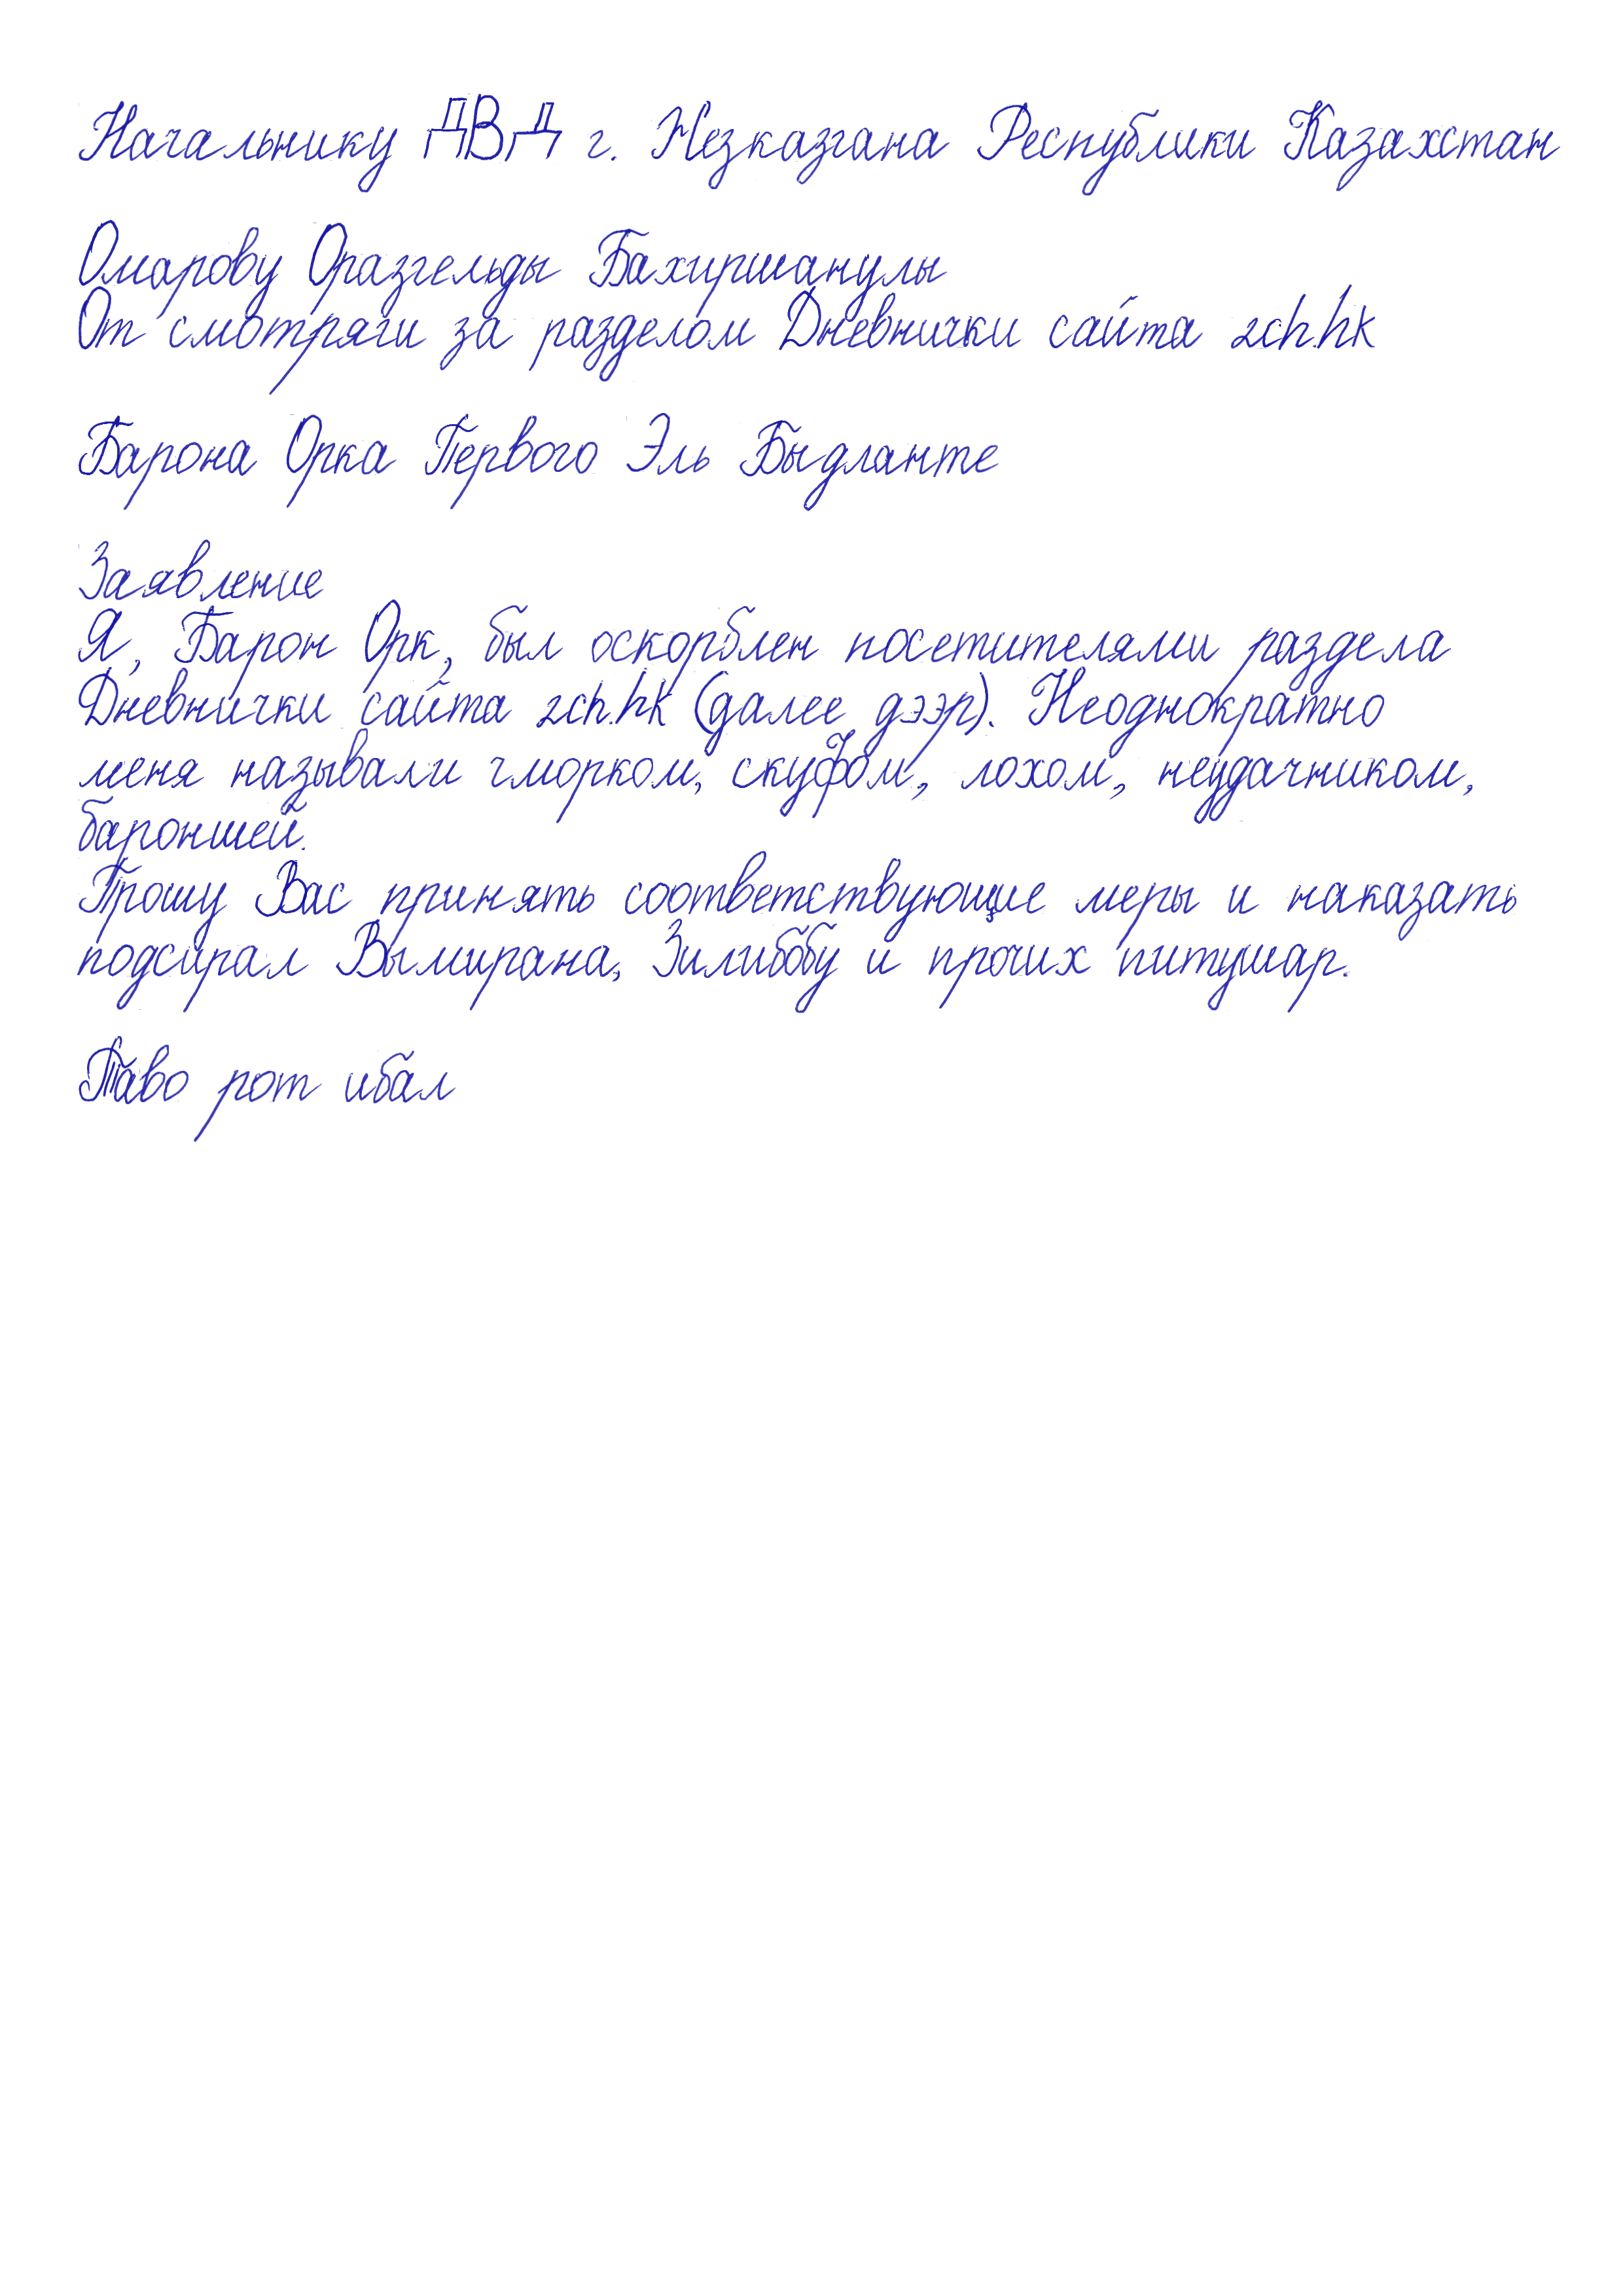 Начальнику ДВД г. Жезказгана Республики Казахстан
Омарову Оразгельды Бахиршанулы
От смотряги за разделом Дневнички сайта 2ch.hk
Барона Орка Первого Эль Быдланте
Заявление
Я, Барон Орк, был оскорблен посетителями раздела
Дневнички сайта 2ch.hk (далее дээр). Неоднократно
меня называли чморком, скуфом, лохом, неудачником,
бароншей.
Прошу Вас принять соответствующие меры и наказать
подсирал Вымирана, Зилибобу и прочих питушар.
Таво рот ибал